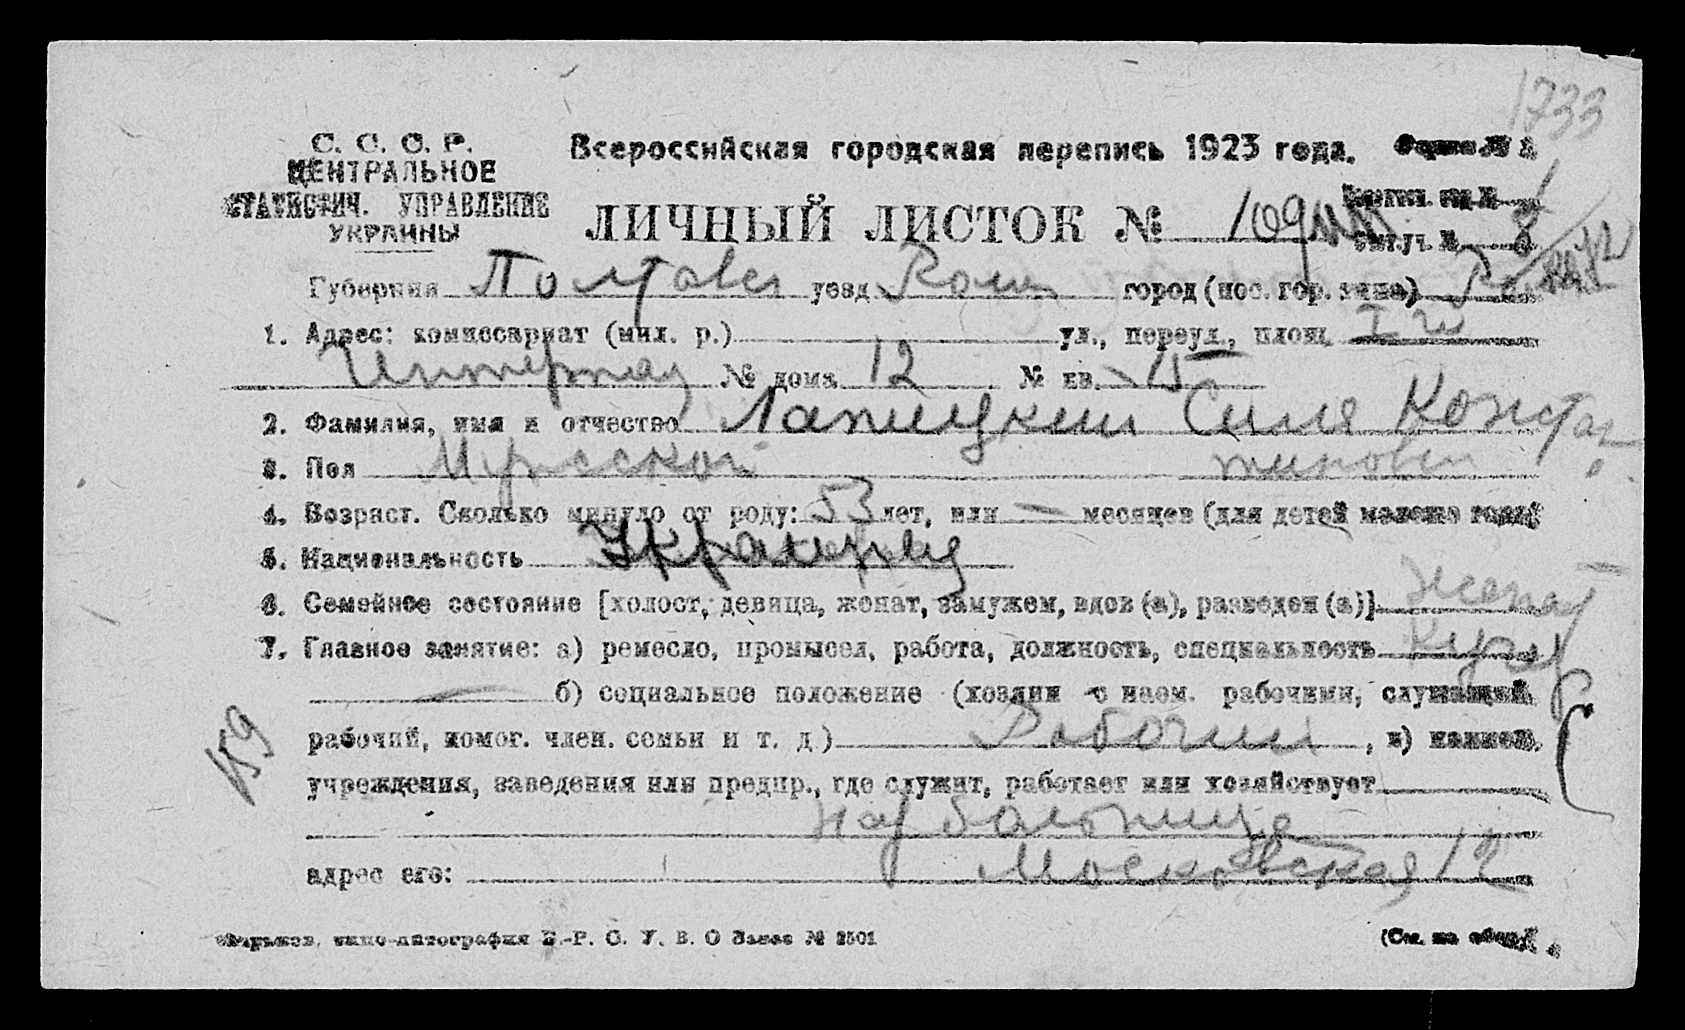 1733
С. С. С. Р.
ЦЕНТРАЛЬНОЕ
СТАТИСТИЧ. УПРАВЛЕНИЕ
УКРАИНЫ
Всероссийская городская перепись 1923 года. Форма № 1
ЛИЧНЫЙ ЛИСТОК №
Губерния Полтавск уезд Ромен город (пос. гор. типа)
1. Адрес: комиссариат (мил. р.) ул., переул., площ.
№ дома 12 № кв. 15
2. Фамилия, имя и отчество Лапицкий Силя Констан
3. Пол Мужской тинович
4. Возраст. Сколько минуло от роду: 53 лет, или — месяцев (для детей моложе года)
5. Национальность Украинец
6. Семейное состояние [холост, девица, женат, замужем, вдов (а), разведен (а)] Женат
7. Главное занятие: а) ремесло, промысел, работа, должность, специальность
— б) социальное положение (хозяин с наем. рабочими, служащий,
159
рабочий, помог. член. семьи и т. д.) Рабочий, в) наимен.
учреждения, заведения или предпр., где служит, работает или хозяйствует
больница
адрес его: Московская 12
Харьков, типо-литография В.-Р. С. У. В. О Заказ № 2501
(См. на обор.)